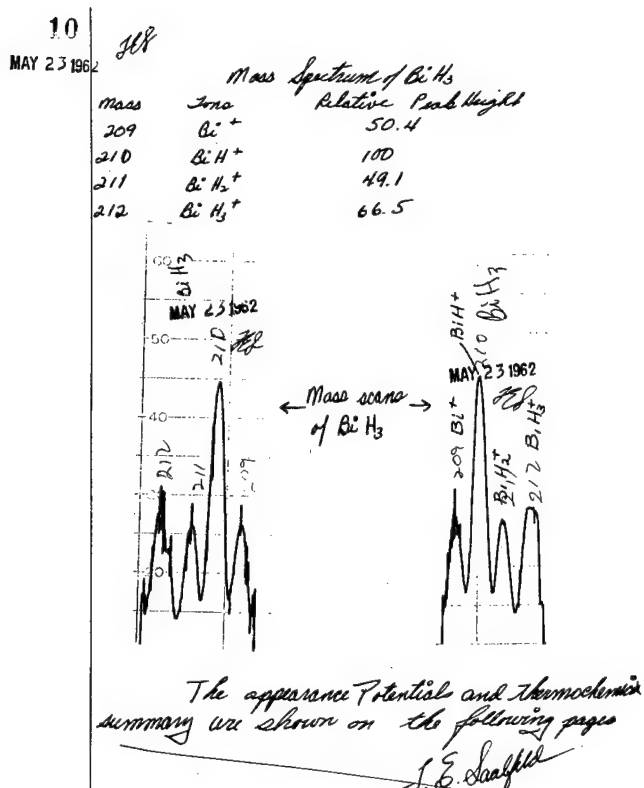 10
MAY 23 1962
Mass Spectrum of BiH3
Mass Ions Relative Peak Height
209 Bi+ 50.4
210 BiH+ 100
211 BiH2+ 49.1
212 BiH3+ 66.5
60
BiH3
MAY 23 1962
50
210
40
212
211
30
209
20
← Mass scans →
of BiH3
BiH+
210 BiH3
MAY 23 1962
209 Bi+
BiH2+
212 BiH3+
The appearance Potential and thermochemical
summary are shown on the following pages
F E. Saalfeld